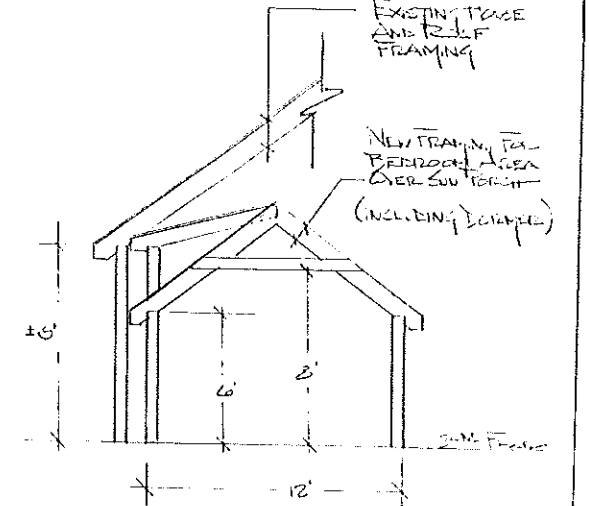 EXISTING
AND ROOF
FRAMING
NEW FRAMING FOR
BEDROOM AREA
OVER SUN PORCH
(INCLUDING DORMER)
6'
8'
12'